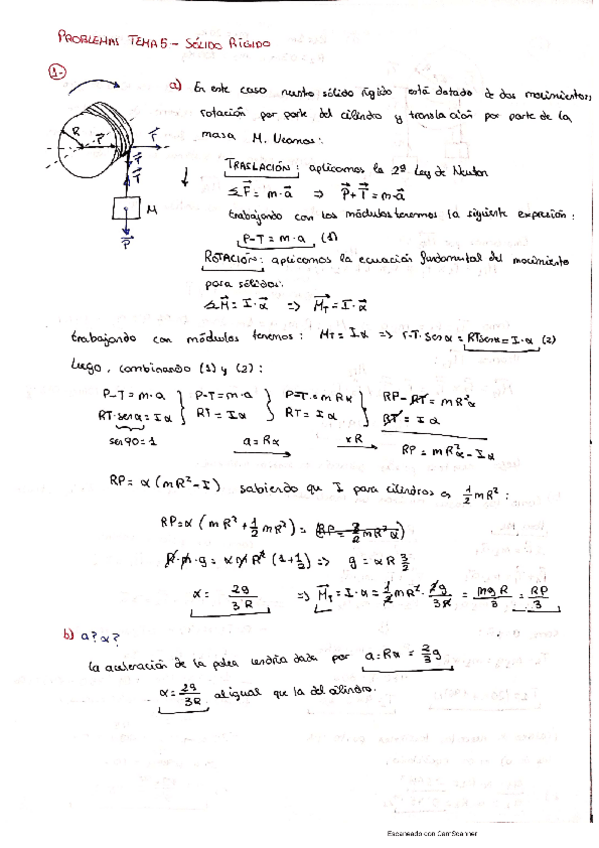 PROBLEMAS TEMA 5 - SÓLIDO RÍGIDO
1-
a) En este caso nuestro sólido rígido está dotado de dos movimientos;
rotación por parte del cilindro y translación por parte de la
masa M. Veamos:
R
r
F
T
T
M
P
TRASLACIÓN: aplicamos la 2ª Ley de Newton
ΣF = m·a ⇒ P+T = m·a
trabajando con los módulos tenemos la siguiente expresión:
P-T = m·a (1)
ROTACIÓN: aplicamos la ecuación fundamental del movimiento
para sólidos:
ΣM = I·α ⇒ M_T = I·α
trabajando con módulos tenemos: M_T = I·α ⇒ r·T·senα = RTsenα = I·α (2)
Luego, combinando (1) y (2):
P-T = m·a } P-T = m·a } P-T = m Rα } RP - RT = mR²α
RT·senα = Iα } RT = Iα } RT = Iα } RT = Iα
sen90=1 a=Rα xR RP = mR²α - Iα
RP = α(mR² - I) sabiendo que I para cilindros es 1/2 mR²:
RP = α(mR² + 1/2 mR²) = (RP = 3/2 mR²α)
R·m·g = α m R² (1+1/2) ⇒ g = αR 3/2
α = 2g/3R ⇒ M_T = I·α = 1/2 mR² · 2g/3R = mgR/3 = RP/3
b) a? α?
La aceleración de la polea vendría dada por a = Rα = 2/3 g
α = 2g/3R al igual que la del cilindro.
Escaneado con CamScanner